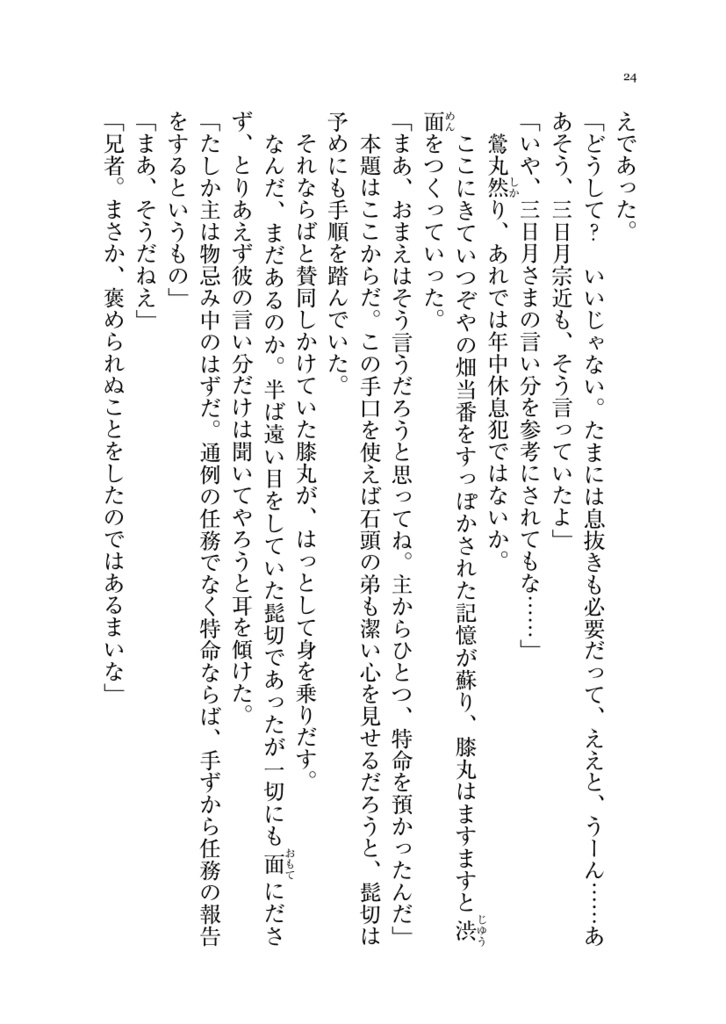 24
えであった。
「どうして?　いいじゃない。たまには息抜きも必要だって、ええと、うーん……あ
あそう、三日月宗近も、そう言っていたよ」
「いや、三日月さまの言い分を参考にされてもな……」
鶯丸然り、あれでは年中休息犯ではないか。
ここにきていつぞやの畑当番をすっぽかされた記憶が蘇り、膝丸はますますと渋
面をつくっていった。
「まあ、おまえはそう言うだろうと思ってね。主からひとつ、特命を預かったんだ」
本題はここからだ。この手口を使えば石頭の弟も潔い心を見せるだろうと、髭切は
予めにも手順を踏んでいた。
それならばと賛同しかけていた膝丸が、はっとして身を乗りだす。
なんだ、まだあるのか。半ば遠い目をしていた髭切であったが一切にも面にださ
ず、とりあえず彼の言い分だけは聞いてやろうと耳を傾けた。
「たしか主は物忌み中のはずだ。通例の任務でなく特命ならば、手ずから任務の報告
をするというもの」
「まあ、そうだねえ」
「兄者。まさか、褒められぬことをしたのではあるまいな」